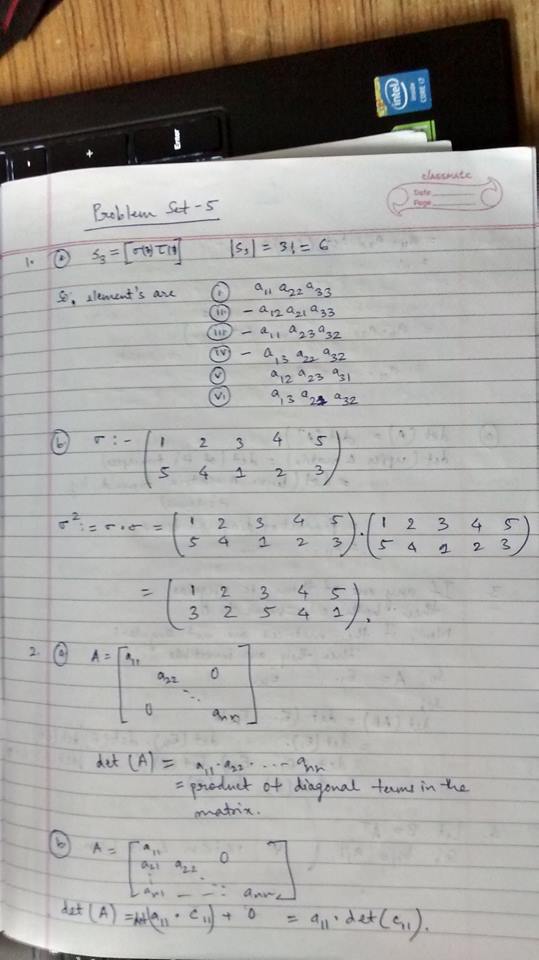 intel
inside
CORE i7
+
Enter
classmate
Date
Page
Problem Set-5
1. (a) S₃ = [σ(3) τ(3)] |S₃| = 3! = 6
So, element's are (i) a₁₁ a₂₂ a₃₃
(ii) - a₁₂ a₂₁ a₃₃
(iii) - a₁₁ a₂₃ a₃₂
(iv) - a₁₃ a₂₂ a₃₂
(v) a₁₂ a₂₃ a₃₁
(vi) a₁₃ a₂₁ a₃₂
(b) σ :- ( 1 2 3 4 5
5 4 1 2 3 )
σ² := σ·σ = ( 1 2 3 4 5 ) · ( 1 2 3 4 5
5 4 1 2 3 ) ( 5 4 1 2 3 )
= ( 1 2 3 4 5
3 2 5 4 1 ).
2. (a) A = [ a₁₁
a₂₂ 0
⋱
0 aₙₙ ]
det (A) = a₁₁·a₂₂· ... aₙₙ
= product of diagonal terms in the
matrix.
(b) A = [ a₁₁
a₂₁ a₂₂ 0
⋮ ⋱
aₙ₁ - - - aₙₙ ]
det (A) = (a₁₁ · C₁₁) + 0 = a₁₁ · det (C₁₁).